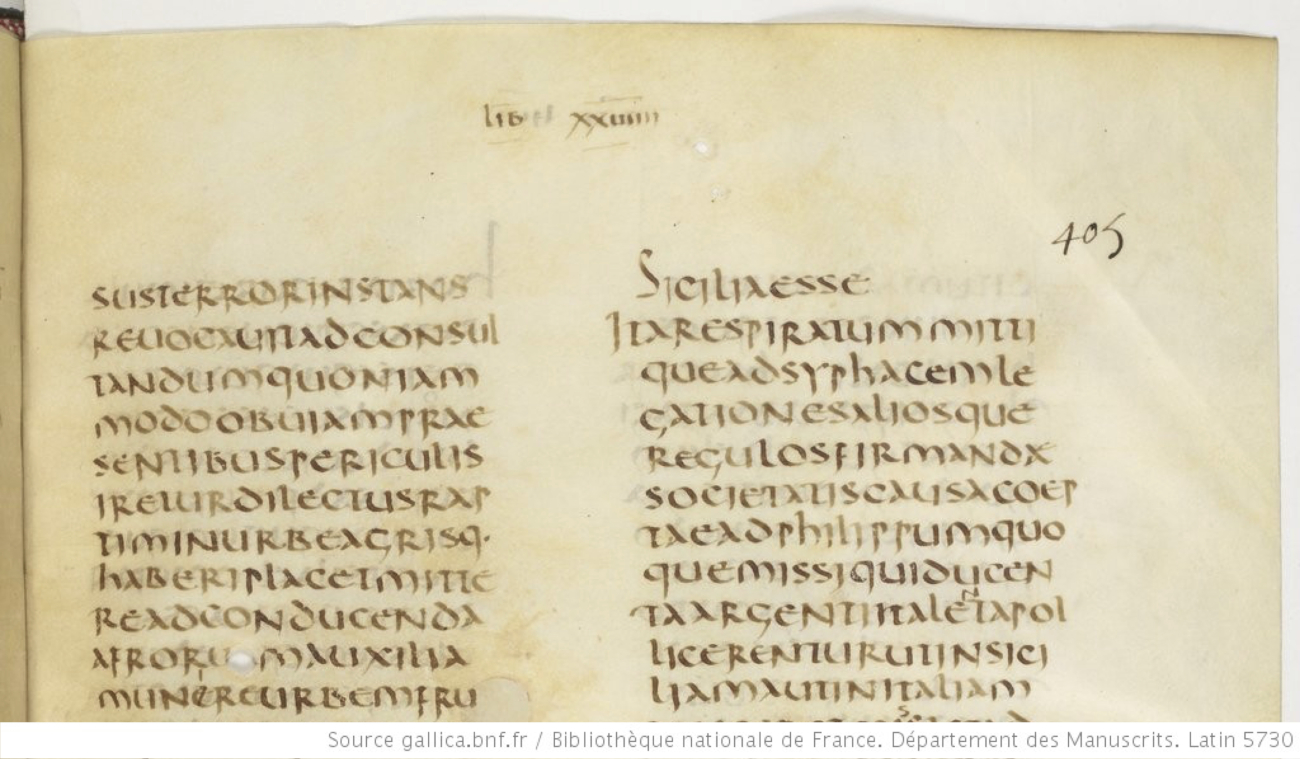 lib xxuiiii
405
susterrorinstans
reuocauitadconsul
tandumquoniam
modoobuiamprae
sentibuspericulis
ireturdilectusrap
timinurbeagrisq·
haberiplacetmitte
readconducenda
afroru mauxilia
munereurbemfru
Siciliaesse
Itarespiratummitti
queadsyphacemle
gationesaliosque
regulosfirmanda
societatiscausacoep
taeadphilippumquo
quemissiquiducen
taargentitaletapol
licerenturutinsici
liamautinitaliam
Source gallica.bnf.fr / Bibliothèque nationale de France. Département des Manuscrits. Latin 5730